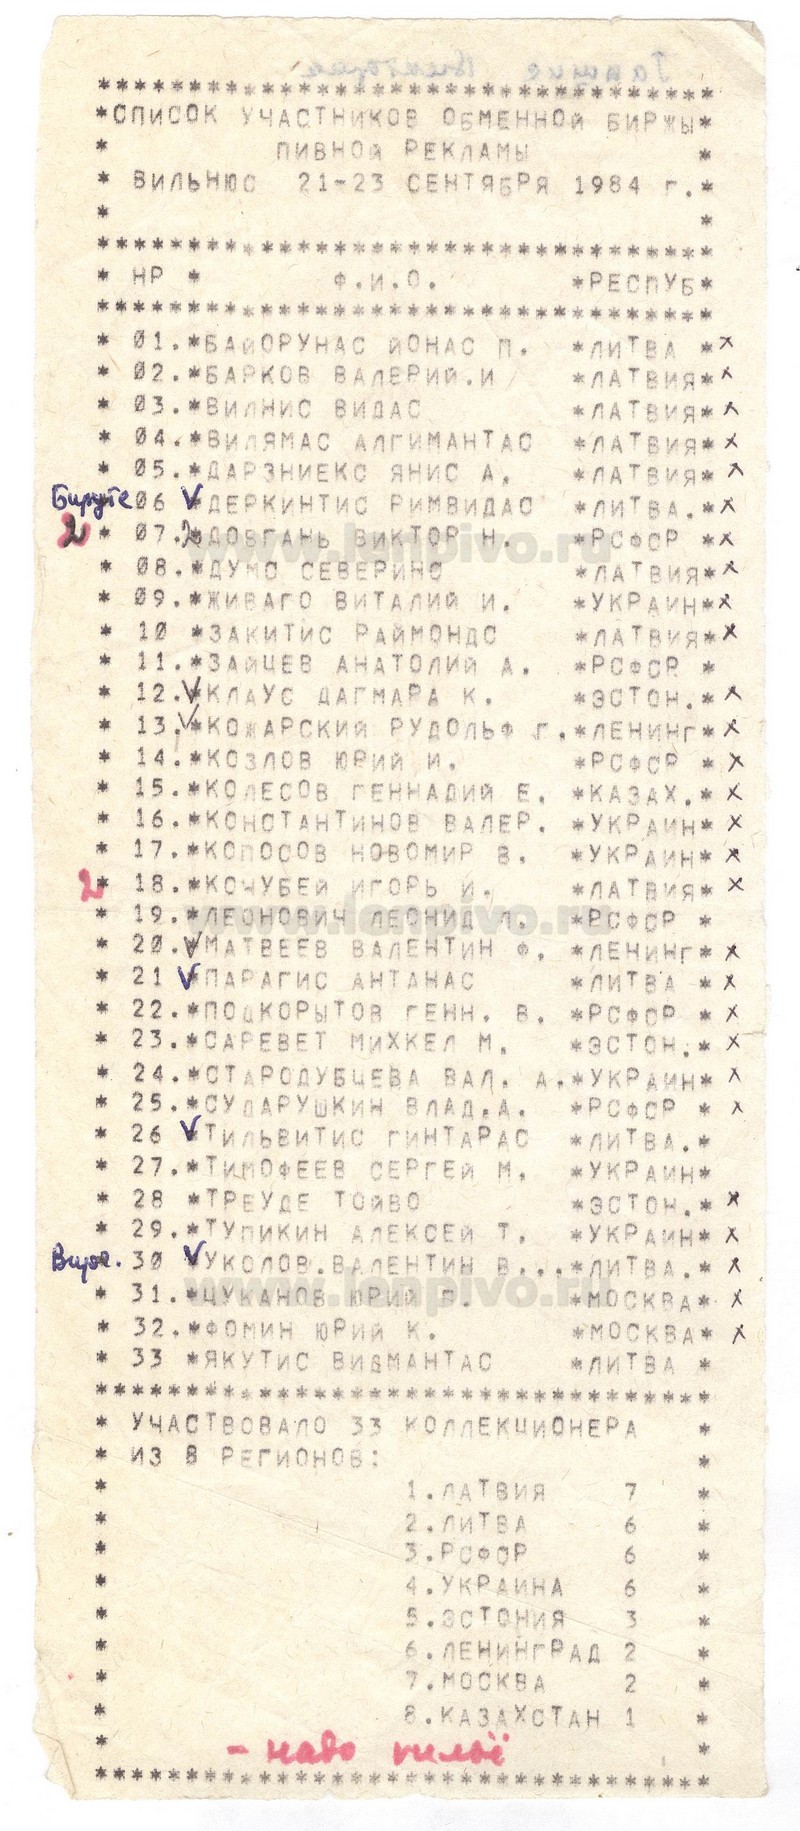 * * * * * * * * * * * * * * * * * * * * * * * * * * * * * *
*СПИСОК УЧАСТНИКОВ ОБМЕННОЙ БИРЖЫ*
* ПИВНОЙ РЕКЛАМЫ *
* ВИЛЬНЮС 21-23 СЕНТЯБРЯ 1984 г.*
* *
* * * * * * * * * * * * * * * * * * * * * * * * * * * * * *
* НР * Ф.И.О. *РЕСПУБ*
* * * * * * * * * * * * * * * * * * * * * * * * * * * * * *
* 01.*БАЙОРУНАС ЙОНАС П. *ЛИТВА *x
* 02.*БАРКОВ ВАЛЕРИЙ.И *ЛАТВИЯ*x
* 03.*ВИЛНИС ВИДАС *ЛАТВИЯ*x
* 04.*ВИЛЯМАС АЛГИМАНТАС *ЛАТВИЯ*x
* 05.*ДАРЗНИЕКС ЯНИС А. *ЛАТВИЯ*x
Бируте 06 V *ДЕРКИНТИС РИМВИДАС *ЛИТВА.*x
2 * 07.2*ДОВГАНЬ ВИКТОР Н. *РСФСР *x
* 08.*ДУМС СЕВЕРИНС *ЛАТВИЯ*x
* 09.*ЖИВАГО ВИТАЛИЙ И. *УКРАИН*x
* 10 *ЗАКИТИС РАЙМОНДС *ЛАТВИЯ*x
* 11.*ЗАЙЦЕВ АНАТОЛИЙ А. *РСФСР *
* 12.V*КЛАУС ДАГМАРА К. *ЭСТОН.*x
* 13.V*КОЖАРСКИЙ РУДОЛЬФ Г.*ЛЕНИНГ*x
* 14.*КОЗЛОВ ЮРИЙ И. *РСФСР *x
* 15.*КОЛЕСОВ ГЕННАДИЙ Е. *КАЗАХ.*x
* 16.*КОНСТАНТИНОВ ВАЛЕР. *УКРАИН*x
* 17.*КОПОСОВ НОВОМИР В. *УКРАИН*x
2* 18.*КОЧУБЕЙ ИГОРЬ И. *ЛАТВИЯ*x
* 19.*ЛЕОНОВИЧ ЛЕОНИД Л. *РСФСР *
* 20.V*МАТВЕЕВ ВАЛЕНТИН Ф. *ЛЕНИНГ*x
* 21 V*ПАРАГИС АНТАНАС *ЛИТВА *x
* 22.*ПОДКОРЫТОВ ГЕНН. В. *РСФСР *x
* 23.*САРЕВЕТ МИХКЕЛ М. *ЭСТОН.*x
* 24.*СТАРОДУБЦЕВА ВАЛ. А.*УКРАИН*x
* 25.*СУДАРУШКИН ВЛАД.А. *РСФСР *x
* 26 V*ТИЛЬВИТИС ГИНТАРАС *ЛИТВА.*
* 27.*ТИМОФЕЕВ СЕРГЕЙ М. *УКРАИН*
* 28 *ТРЕУДЕ ТОЙВО *ЭСТОН.*x
* 29.*ТУПИКИН АЛЕКСЕЙ Т. *УКРАИН*x
* 30 V УКОЛОВ.ВАЛЕНТИН В...*ЛИТВА.*x
* 31.*ЦУКАНОВ ЮРИЙ П. *МОСКВА*x
* 32.*ФОМИН ЮРИЙ К. *МОСКВА*x
* 33 *ЯКУТИС ВИДМАНТАС *ЛИТВА *
* * * * * * * * * * * * * * * * * * * * * * * * * * * * * *
* УЧАСТВОВАЛО 33 КОЛЛЕКЦИОНЕРА *
* ИЗ 8 РЕГИОНОВ: *
* 1.ЛАТВИЯ 7 *
* 2.ЛИТВА 6 *
* 3.РСФСР 6 *
* 4.УКРАИНА 6 *
* 5.ЭСТОНИЯ 3 *
* 6.ЛЕНИНГРАД 2 *
* 7.МОСКВА 2 *
* 8.КАЗАХСТАН 1 *
- надо жильё
* * * * * * * * * * * * * * * * * * * * * * * * * * * * * *
www.lenpivo.ru
www.lenpivo.ru
www.lenpivo.ru